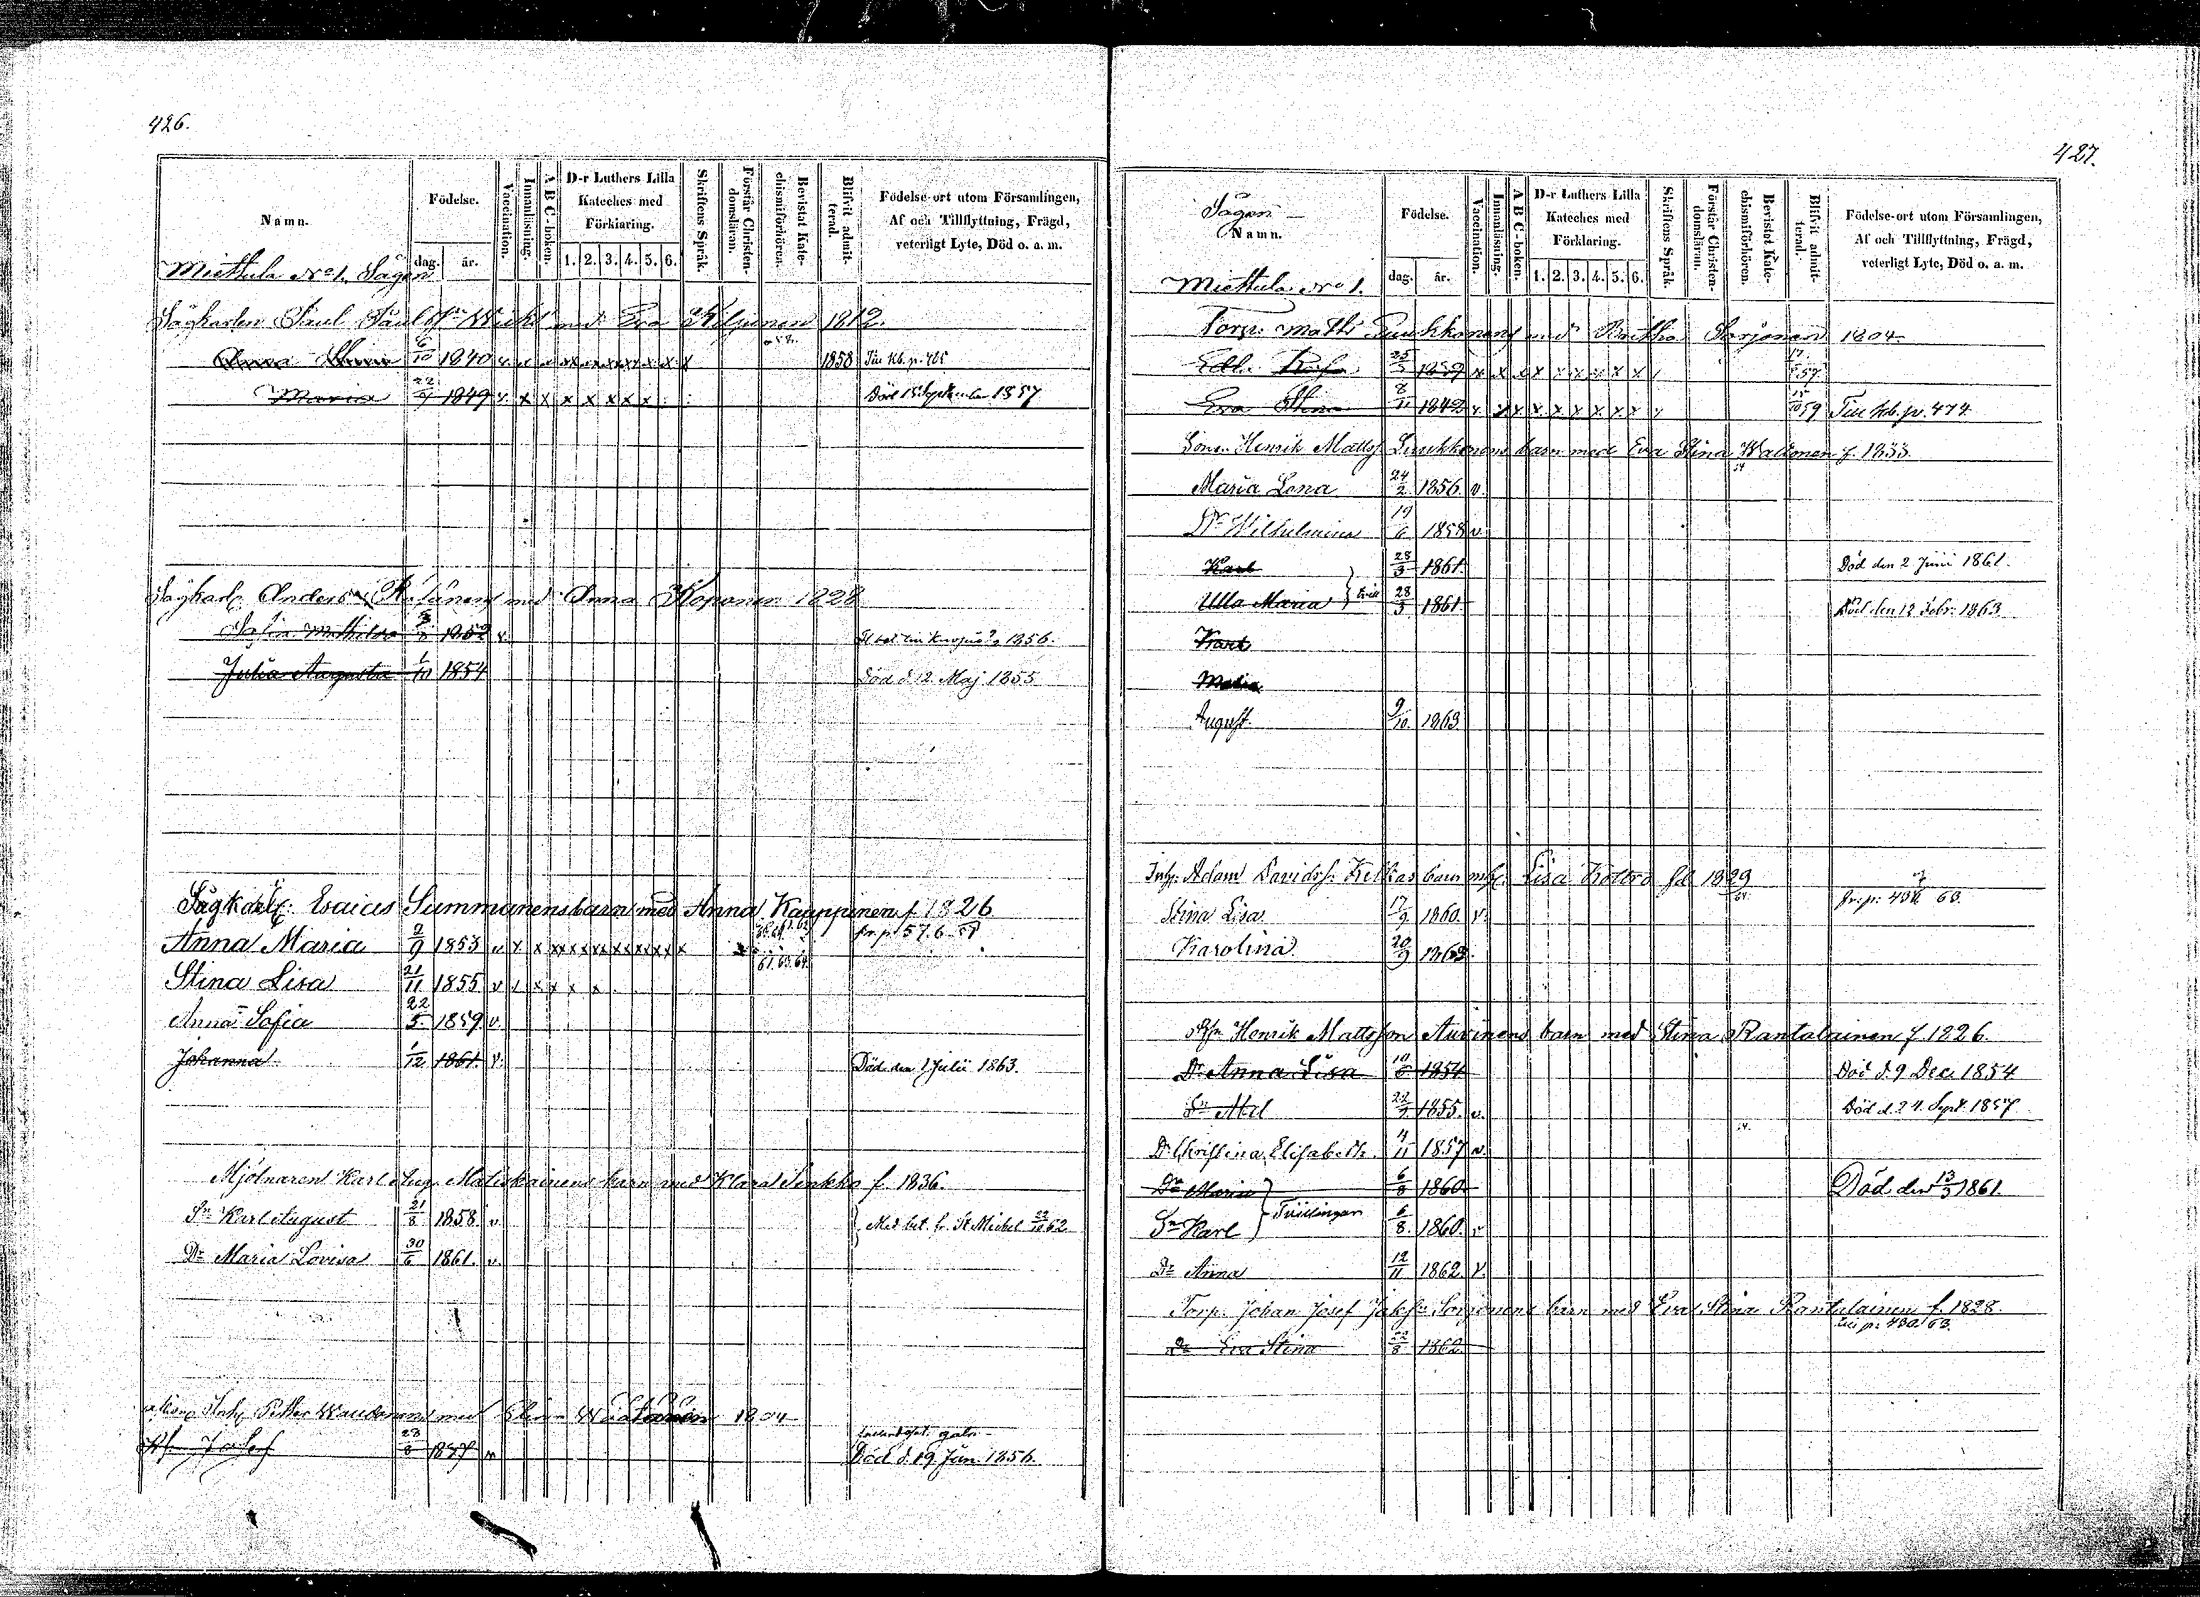 426.
Namn.
Födelse.
dag. år.
Vaccination.
Innanläsning.
A B C-boken.
D-r Luthers Lilla Kateches med Förklaring.
1. 2. 3. 4. 5. 6.
Skriftens Språk.
Förstår Christendomsläran.
Bevistat Katechismiförhören.
Blifvit admitterad.
Födelse-ort utom Församlingen, Af och Tillflyttning, Frägd, veterligt Lyte, Död o. a. m.
Miettula No 1. Sågen
Sågkarlen Paul Paulss med Eva Kilpinen 1812.
Anna Stina 6/10 1840 1858
Maria 22/7 1849 Död 15 September 1857
Sågkarl Anders med Anna Koponen 1828
Sofia Mathilda 1852 v. 1856.
Julia Augusta 1/10 1854 Död d. 12 Maj 1855
Esaias Summanens barn med Anna Kauppinen f. 1826
Anna Maria 2/9 1853 v x 61. 63. 64.
Stina Lisa 21/11 1855 v
Anna Sofia 22/5 1859 v.
Johanna 1/12 1861. v. Död den 1 Julii 1863.
Mjölnaren Karl Aug. Matiskainens barn med Klara Sinkko f. 1836.
Sn Karl August 21/8 1858. v Med bet. fr. St Michel 22/10 62
Dr Maria Lovisa 30/6 1861. v.
Petter med Stina 1804
Josef 28/8 1837 Död d. 19 Jun. 1856.
427.
Sågen
Namn.
Födelse.
dag. år.
Vaccination.
Innanläsning.
A B C-boken.
D-r Luthers Lilla Kateches med Förklaring.
1. 2. 3. 4. 5. 6.
Skriftens Språk.
Förstår Christendomsläran.
Bevistat Katechismiförhören.
Blifvit admitterad.
Födelse-ort utom Församlingen, Af och Tillflyttning, Frägd, veterligt Lyte, Död o. a. m.
Miettula No 1.
Torp. Matts med Britha Sorjonen 1804
57.
Eva Stina 8/11 1842 59 Till kb. p. 474.
Sonen Henrik Mattss Suukkonens barn med Eva Stina Waltonen f. 1833.
Maria Lena 24/2 1856. v.
Dr Wilhelmina 19/6 1858 v.
Karl 28/3 1861. Död den 2 Junii 1861.
Ulla Maria 28/3 1861 Död den 12 Febr. 1863
Karl
Maria
August. 9/10. 1863.
Inh. Adam Davidss. barn m. Lisa född 1829
Stina Lisa 17/9 1860. v. 63.
Karolina 20/9 1863.
Henrik Mattsson Auvinens barn med Stina Rantalainen f. 1826.
Dr Anna Lisa 1854 Död d. 9 Dec. 1854
Sn Abel 1855. v. Död d. 24 Sept. 1857
Dr Christina Elisabeth. 4/11 1857 v.
Dr Maria 6/8 1860. Död den 13/3 1861
Tvillingar
Sn Karl 6/8. 1860. v
Dr Anna 12/11 1862. v.
Torp. Johan Josef Sorjonens barn med Eva Stina Rantalainen f. 1828.
Dr Eva Stina 22/8 1862. 63.